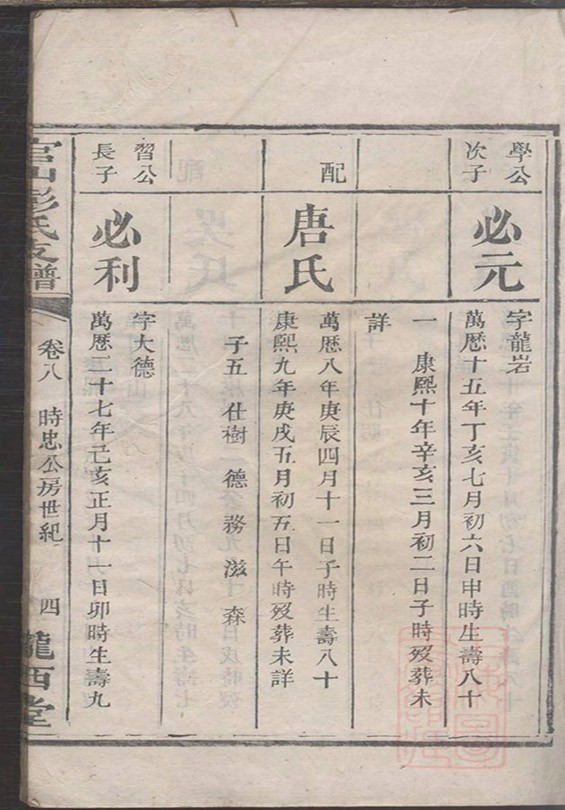 學公
次子
必元
字龍岩
萬厯十五年丁亥七月初六日申時生壽八十
一　康熙十年辛亥三月初二日子時歿葬未
詳
配
唐氏
萬厯八年庚辰四月十一日子時生壽八十
康熙九年庚戌五月初五日午時歿葬未詳
子五　仕樹　德　務　滋　森
習公
長子
必利
字大德
萬厯二十七年己亥正月十一日卯時生壽九
官山彭氏支譜
卷八　時忠公房世紀　四
隴西堂